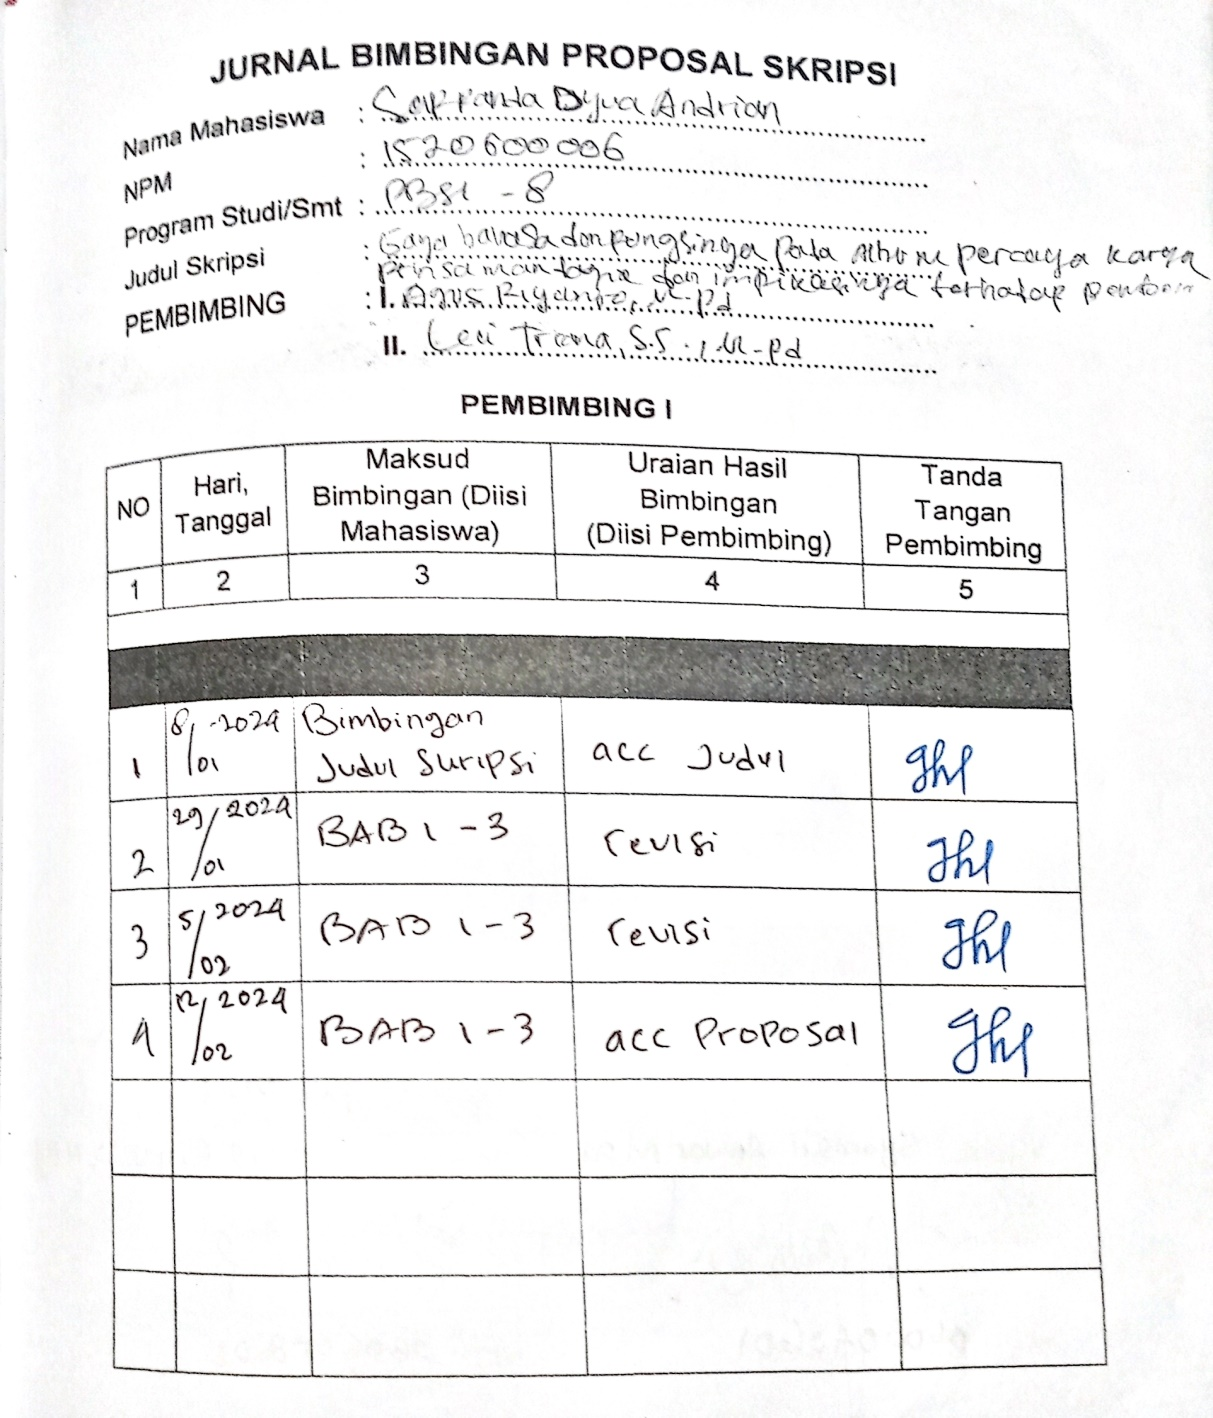 JURNAL BIMBINGAN PROPOSAL SKRIPSI
Nama Mahasiswa : Andrian
NPM : 1520600006
Program Studi/Smt : PBSI - 8
Judul Skripsi : Gaya bahasa dan fungsinya pada Albom percaya karya
dan terhadap
PEMBIMBING : I. Agus Riyanto, M.pd
II. Leli Triana, S.S., M.pd
PEMBIMBING I
NO Hari, Tanggal Maksud Bimbingan (Diisi Mahasiswa) Uraian Hasil Bimbingan (Diisi Pembimbing) Tanda Tangan Pembimbing
1 2 3 4 5
1 8/01-2024 Bimbingan Judul Skripsi acc Judul
2 29/01 2024 BAB 1 - 3 revisi
3 5/02 2024 BAB 1 - 3 revisi
4 12/02 2024 BAB 1 - 3 acc Proposal